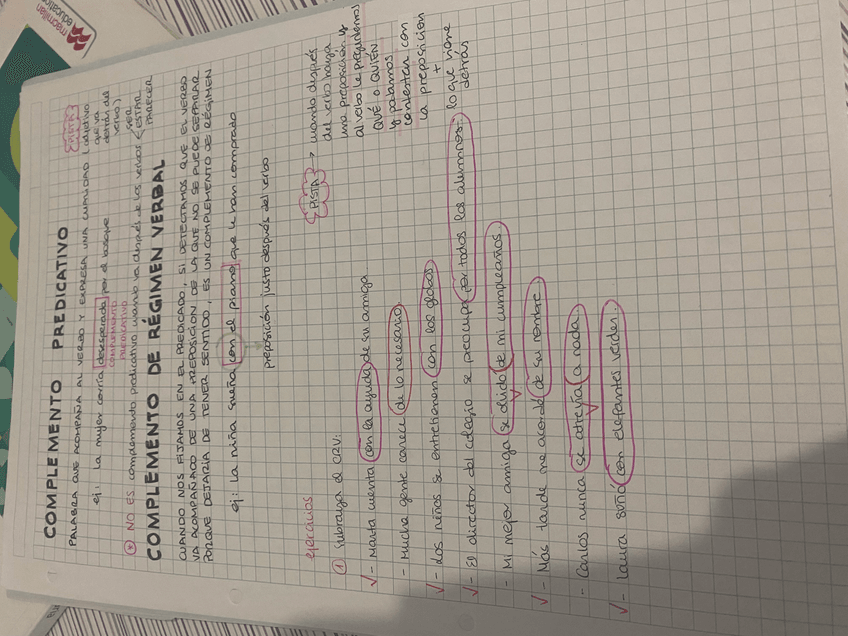 macmillan
education
COMPLEMENTO PREDICATIVO
PISTA
PALABRA QUE ACOMPAÑA AL VERBO Y EXPRESA UNA CUALIDAD (adjetivo
que va
detrás del
verbo)
ej: La mujer corría desesperada por el bosque
COMPLEMENTO
PREDICATIVO
* NO ES complemento predicativo cuando va después de los verbos
SER
ESTAR
PARECER
COMPLEMENTO DE RÉGIMEN VERBAL
CUANDO NOS FIJAMOS EN EL PREDICADO, SI DETECTAMOS QUE EL VERBO
VA ACOMPAÑADO DE UNA PREPOSICIÓN DE LA QUE NO SE PUEDE SEPARAR
PORQUE DEJARÍA DE TENER SENTIDO, ES UN COMPLEMENTO DE RÉGIMEN
ej: La niña sueña con el piano que le han comprado
preposición justo después del verbo
PISTA → cuando después
del verbo haya
una preposición y
al verbo le preguntemos
QUÉ O QUIÉN
y podamos
contestar con
la preposición
+
lo que viene
detrás
ejercicios
1 Subraya el CRV:
- Marta cuenta con la ayuda de su amiga
- Mucha gente carece de lo necesario
- Los niños se entretienen con los globos
- El director del colegio se preocupa por todos los alumnos.
- Mi mejor amiga se olvidó de mi cumpleaños.
- Más tarde me acordé de su nombre.
- Carlos nunca se atrevía a nada.
- Laura soñó con elefantes verdes.